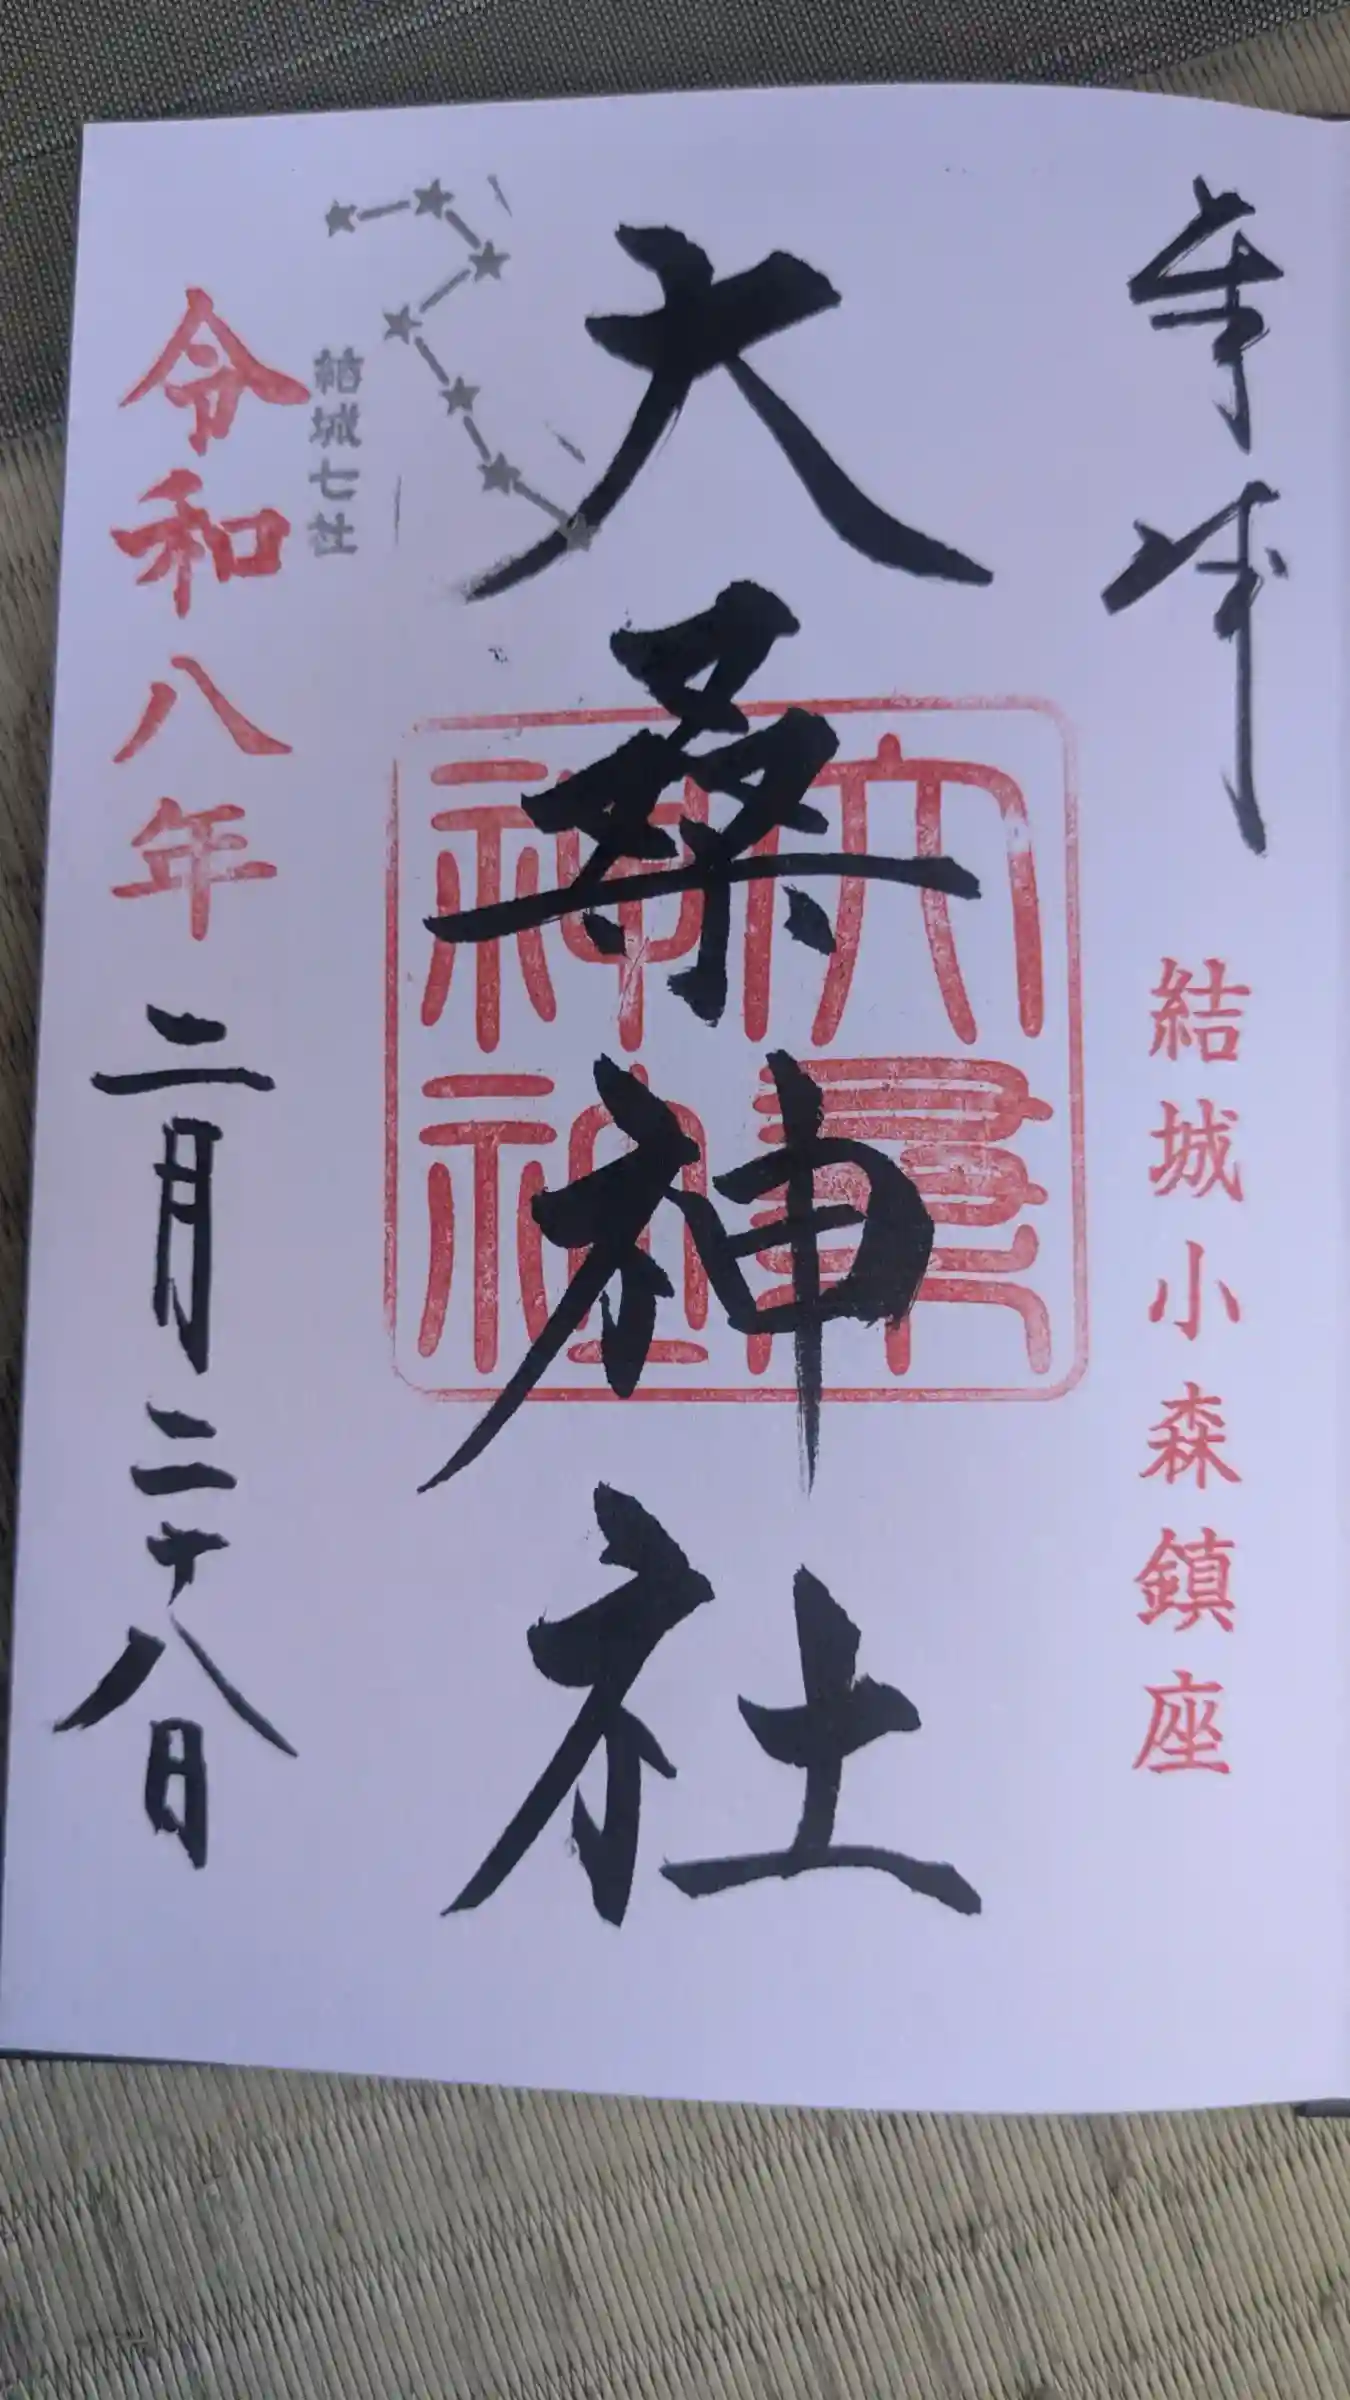 奉拝
結城小森鎮座
大桑神社
大桑
神社
結城七社
令和八年二月二十八日